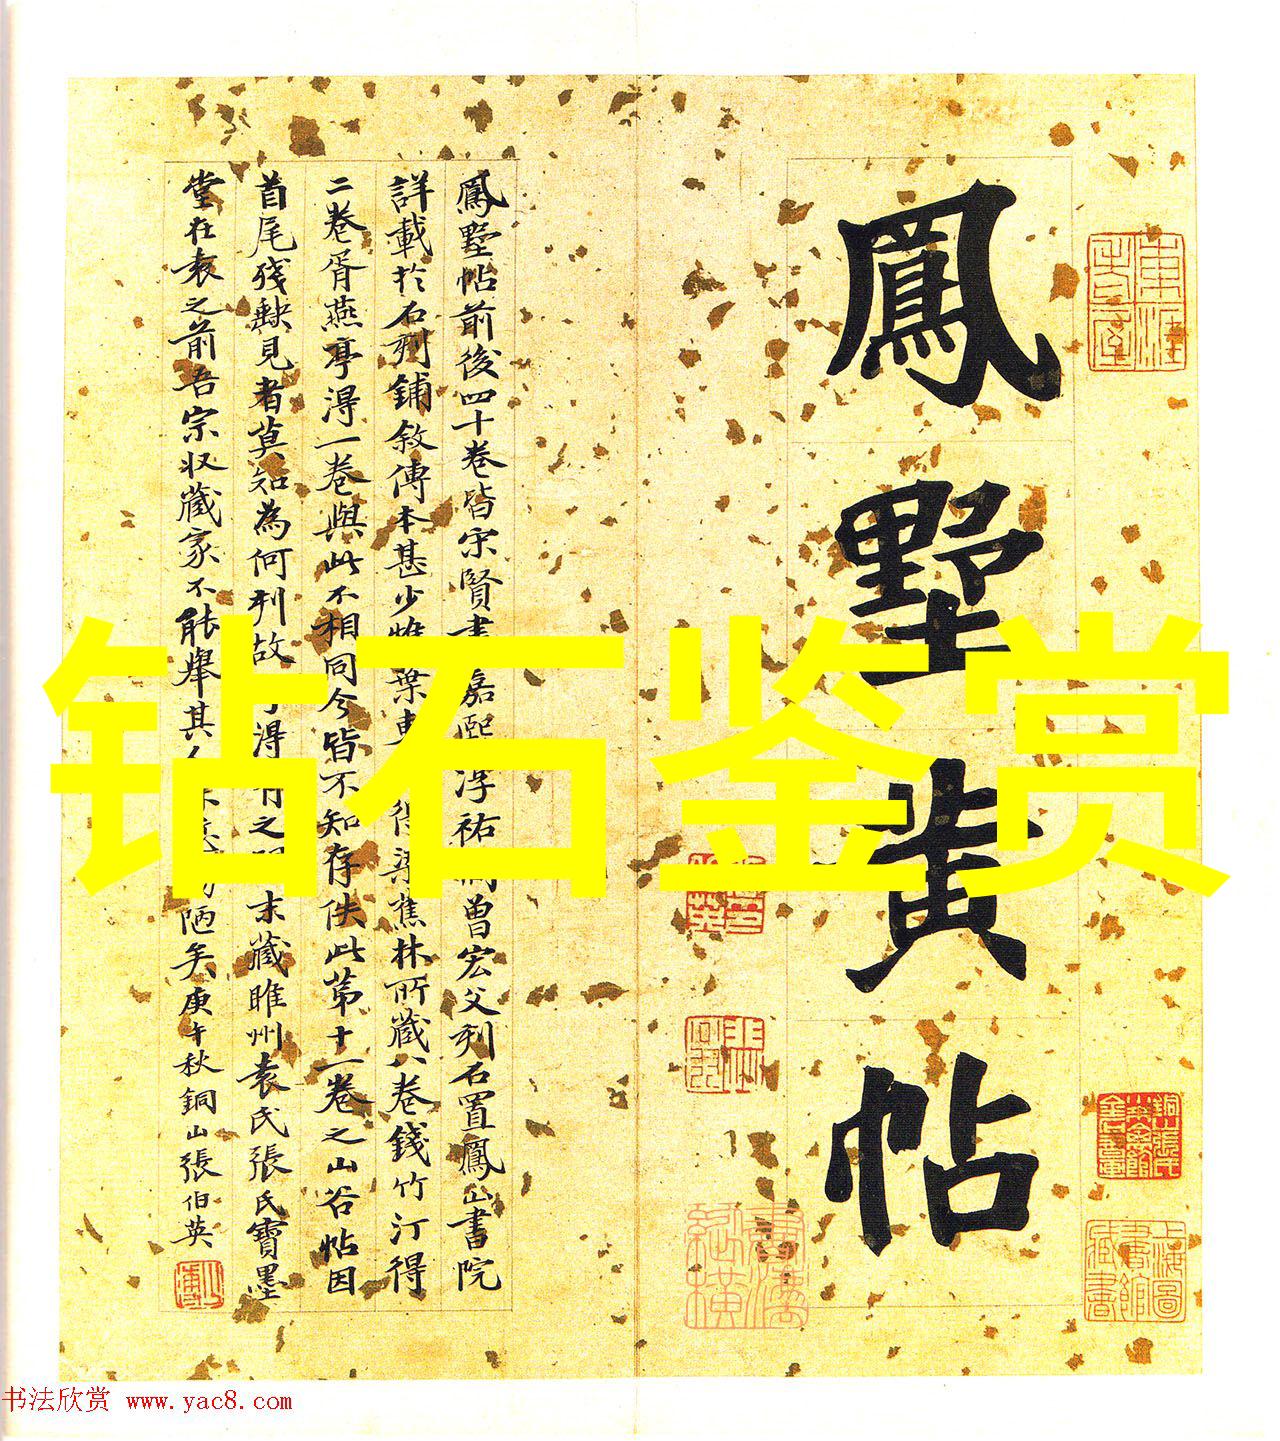 鳳墅黃帖
鳳墅帖前後四十卷皆宋賢書嘉熙淳祐間曾宏父刻石置鳳山書院
詳載於石刻鋪敘傳本甚少惟葉東得梁蕉林所藏八卷錢竹汀得
二卷胥燕亭得一卷與此不相同今皆不知存佚此第十一卷之山谷帖因
首尾殘缺見者莫知為何刻故得有之明末藏睢州袁氏張氏寶墨
堂在袁之前吾宗収藏家不能舉其陋矣庚午秋銅山張伯英
钻石鉴赏
上海圖書館藏書
书法欣赏 www.yac8.com